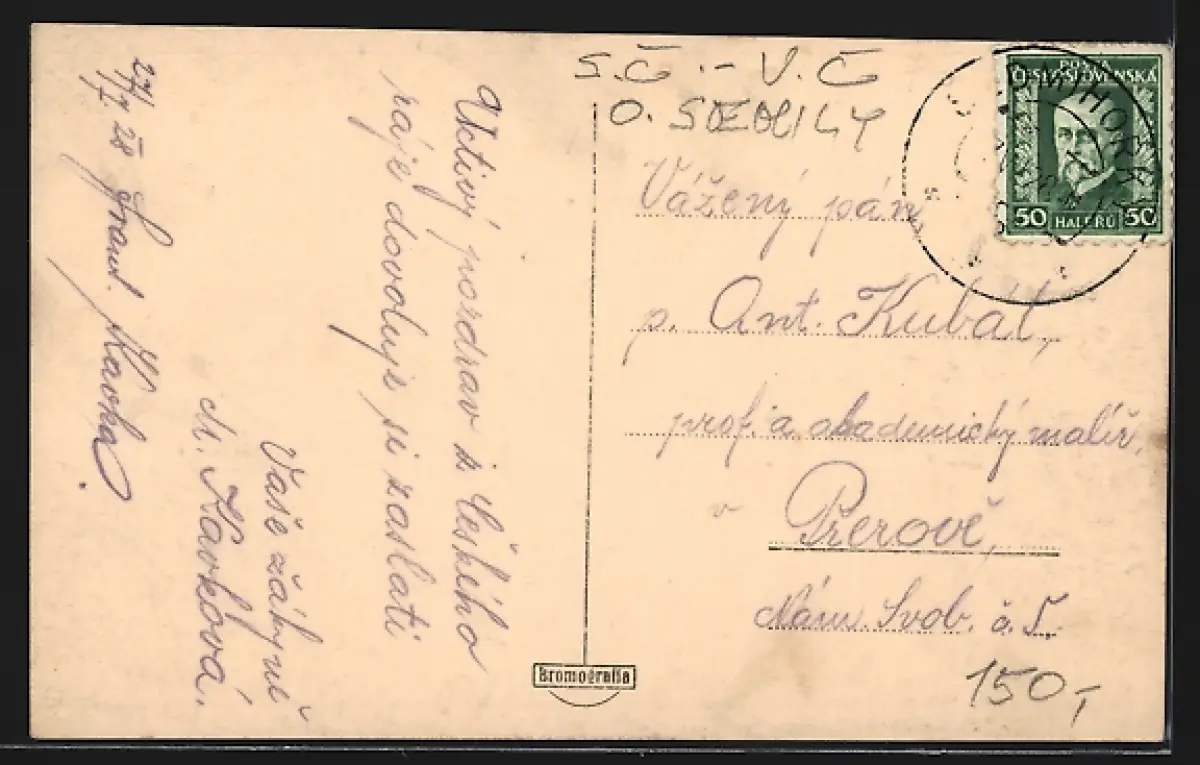 27/7 28 Frant. Kavka
Uctivý pozdrav z Českého
ráje dovoluje si zaslati
Vaše žákyně
M. Kavková.
S.Č. - V.Č
O. SEMILY
POŠTA
ČESKOSLOVENSKÁ
50 HALÉŘŮ 50
Vážený pán
p. Ant. Kubát,
prof. a akademický malíř,
v Přerově,
Nám. Svob. č.
Bromografia
150,-